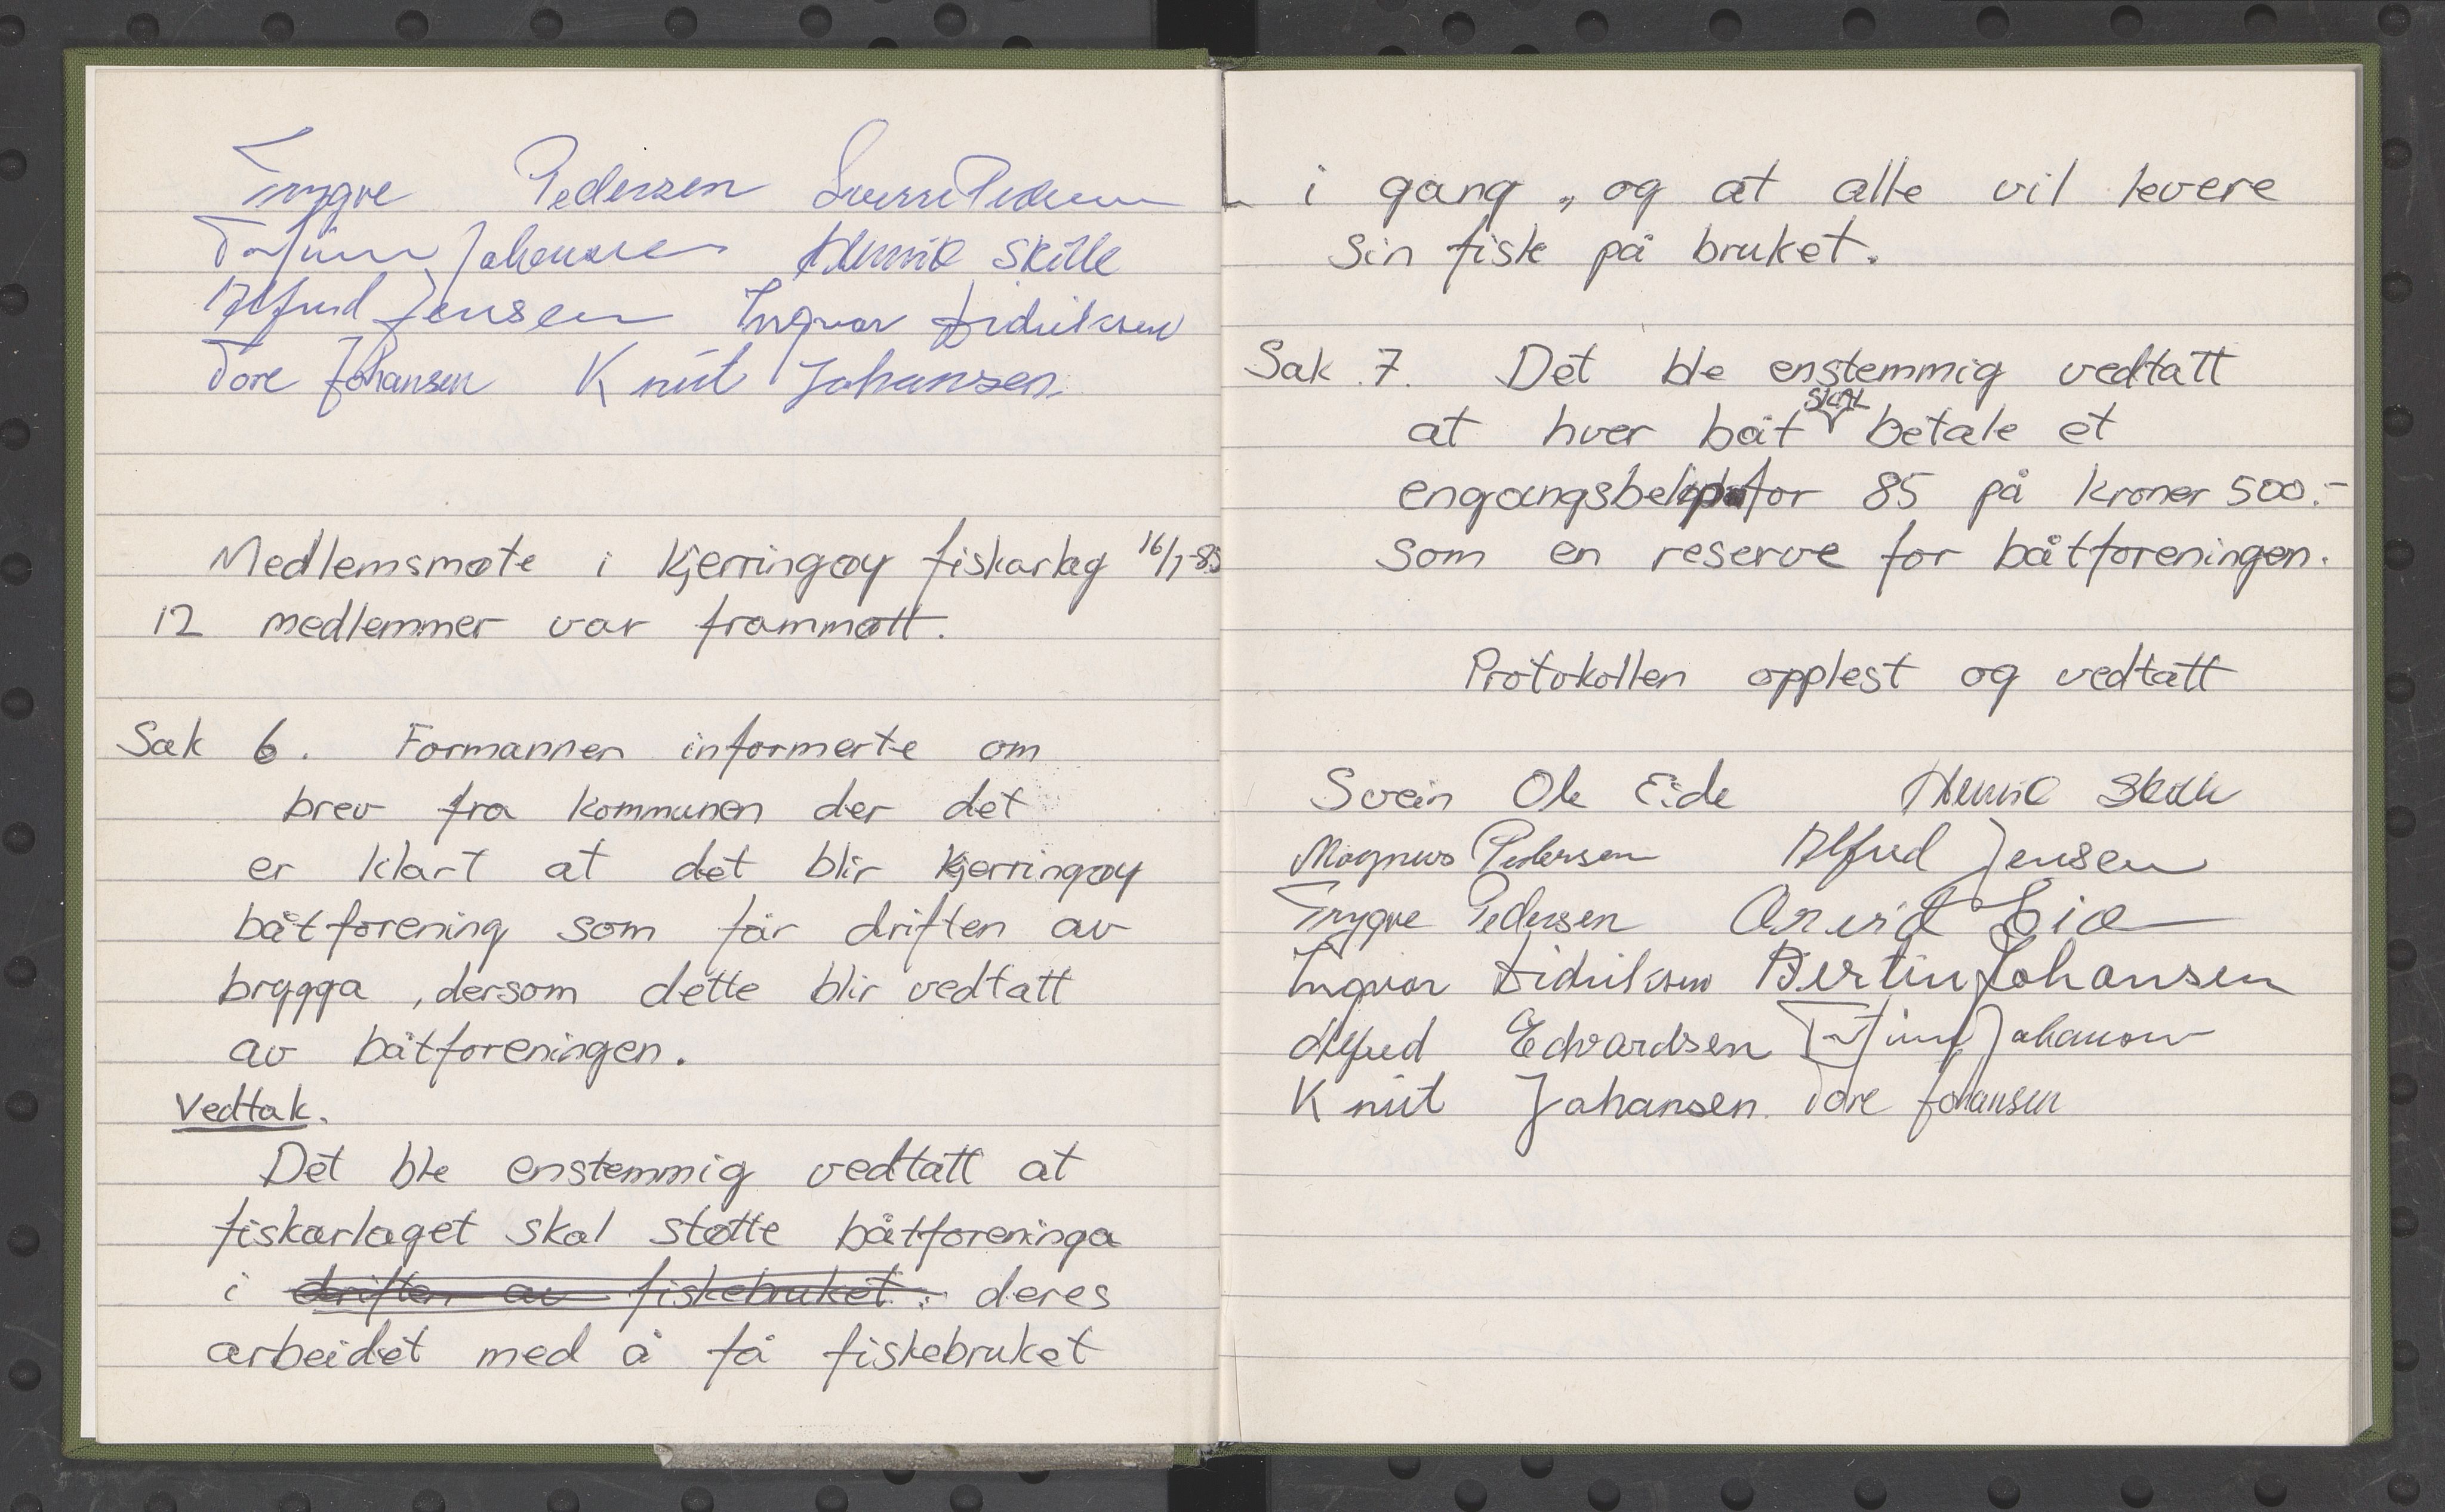 Trygve Pedersen Sverre Pedersen
Torfinn Johansen Henrik Skille
Alfred Jensen Ingvar Didriksen
Tore Johansen Knut Johansen
Medlemsmøte i Kjerringøy fiskarlag 16/1-85
12 medlemmer var frammøtt.
Sak 6. Formannen informerte om
brev fra kommunen der det
er klart at det blir Kjerringøy
båtforening som får driften av
brygga, dersom dette blir vedtatt
av båtforeningen.
Vedtak.
Det ble enstemmig vedtatt at
fiskarlaget skal støtte båtforeninga
i driften av fiskebruket. deres
arbeidet med å få fiskebruket
i gang, og at alle vil levere
sin fisk på bruket.
Sak 7. Det ble enstemmig vedtatt
at hver båt skal betale et
engangsbeløp for 85 på kroner 500.-
som en reserve for båtforeningen.
Protokollen opplest og vedtatt
Svein Ole Eide Henrik Skille
Magnus Pedersen Alfred Jensen
Trygve Pedersen Arvid
Ingvar Didriksen Bertin Johansen
Alfred Edvardsen Torfinn Johansen
Knut Johansen. Tore Johansen